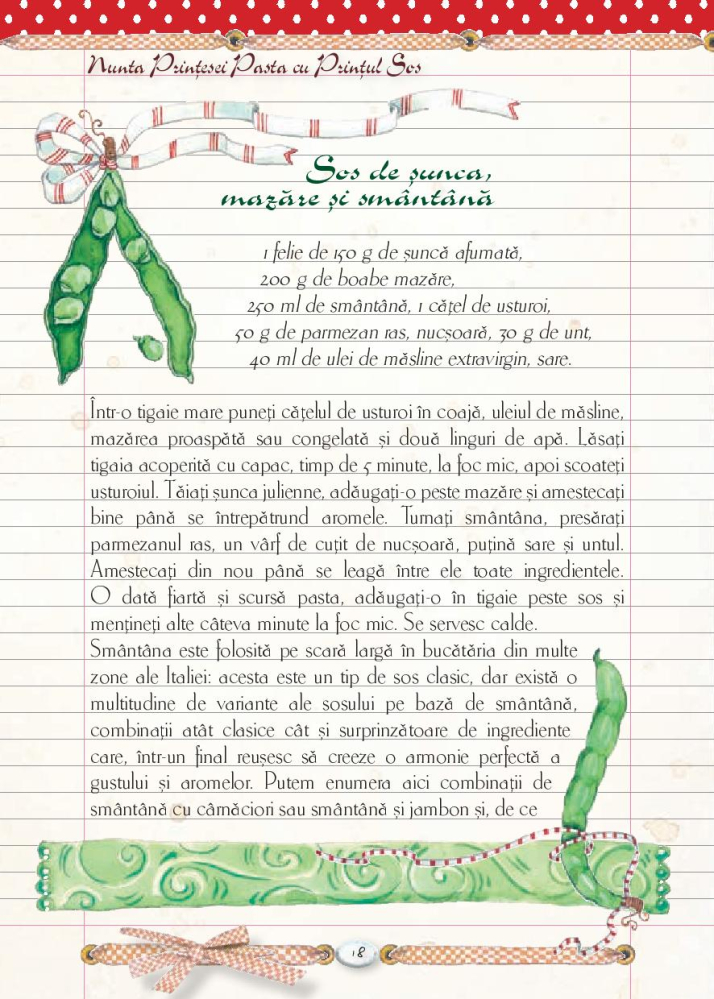 Nunta Prințesei Pasta cu Prințul Sos
Sos de șunca,
mazăre și smântână
1 felie de 150 g de șuncă afumată,
200 g de boabe mazăre,
250 ml de smântână, 1 cățel de usturoi,
50 g de parmezan ras, nucșoară, 30 g de unt,
40 ml de ulei de măsline extravirgin, sare.
Într-o tigaie mare puneți cățelul de usturoi în coajă, uleiul de măsline,
mazărea proaspătă sau congelată și două linguri de apă. Lăsați
tigaia acoperită cu capac, timp de 5 minute, la foc mic, apoi scoateți
usturoiul. Tăiați șunca julienne, adăugați-o peste mazăre și amestecați
bine până se întrepătrund aromele. Turnați smântâna, presărați
parmezanul ras, un vârf de cuțit de nucșoară, puțină sare și untul.
Amestecați din nou până se leagă între ele toate ingredientele.
O dată fiartă și scursă pasta, adăugați-o în tigaie peste sos și
mențineți alte câteva minute la foc mic. Se servesc calde.
Smântâna este folosită pe scară largă în bucătăria din multe
zone ale Italiei: acesta este un tip de sos clasic, dar există o
multitudine de variante ale sosului pe bază de smântână,
combinații atât clasice cât și surprinzătoare de ingrediente
care, într-un final reușesc să creeze o armonie perfectă a
gustului și aromelor. Putem enumera aici combinații de
smântână cu cârnăciori sau smântână și jambon și, de ce
18